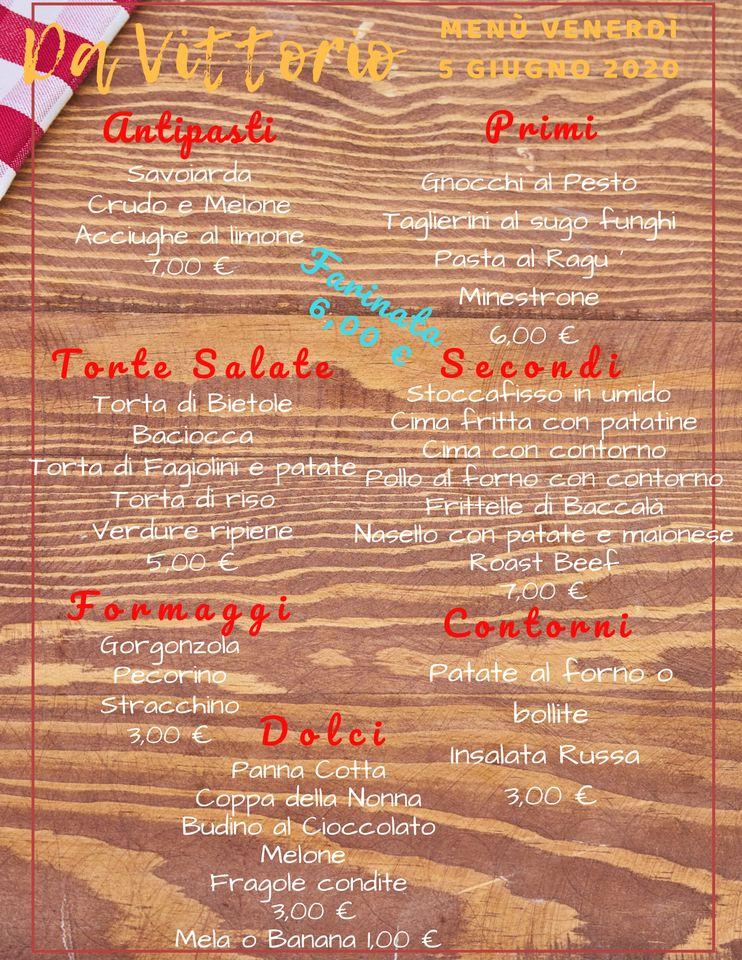 Da Vittorio
MENÙ VENERDÌ
5 GIUGNO 2020
Antipasti
Savoiarda
Crudo e Melone
Acciughe al limone
7,00 €
Primi
Gnocchi al Pesto
Taglierini al sugo funghi
Pasta al Ragu '
Minestrone
6,00 €
Farinata
6,00 €
Torte Salate
Torta di Bietole
Baciocca
Torta di Fagiolini e patate
Torta di riso
Verdure ripiene
5,00 €
Secondi
Stoccafisso in umido
Cima fritta con patatine
Cima con contorno
Pollo al forno con contorno
Frittelle di Baccalà
Nasello con patate e maionese
Roast Beef
7,00 €
Formaggi
Gorgonzola
Pecorino
Stracchino
3,00 €
Contorni
Patate al forno o
bollite
Insalata Russa
3,00 €
Dolci
Panna Cotta
Coppa della Nonna
Budino al Cioccolato
Melone
Fragole condite
3,00 €
Mela o Banana 1,00 €